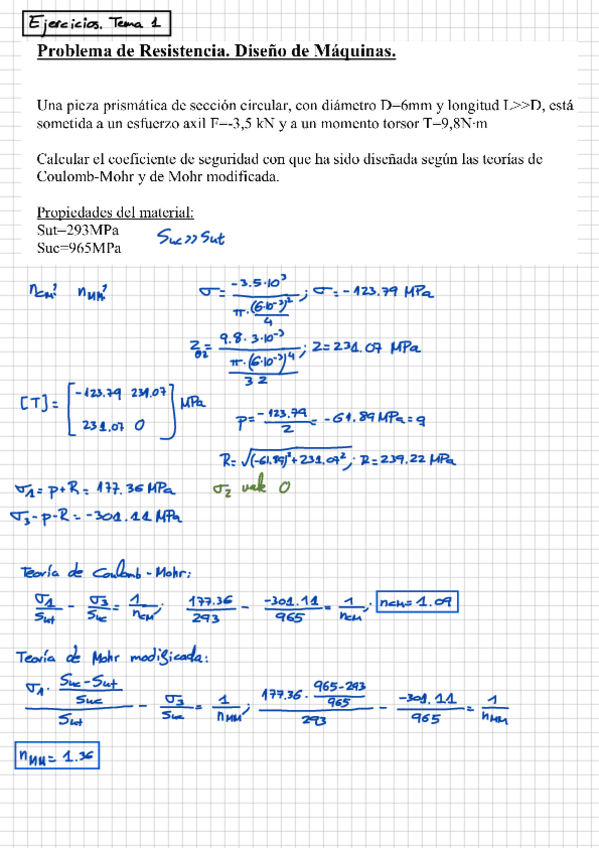 Ejercicios. Tema 1
Problema de Resistencia. Diseño de Máquinas.
Una pieza prismática de sección circular, con diámetro D=6mm y longitud L>>D, está
sometida a un esfuerzo axil F=-3,5 kN y a un momento torsor T=9,8N·m
Calcular el coeficiente de seguridad con que ha sido diseñada según las teorías de
Coulomb-Mohr y de Mohr modificada.
Propiedades del material:
Sut=293MPa
Suc=965MPa
Suc >> Sut
nCM? nMM?
σ = -3.5·10³ / (π·(6·10⁻³)²/4); σ = -123.79 MPa
= 9.8·3·10⁻³ / (π·(6·10⁻³)⁴/32); Z = 231.07 MPa
[T] = [-123.79 231.07
231.07 0] MPa
p = -123.79/2 = -61.89 MPa = q
R = √((-61.89)² + 231.07²); R = 239.22 MPa
σ1 = p+R = 177.36 MPa
σ2 vale 0
σ3 - p-R = -301.11 MPa
Teoría de Coulomb-Mohr:
σ1/Sut - σ3/Suc = 1/nCM; 177.36/293 - -301.11/965 = 1/nCM; nCM = 1.09
Teoría de Mohr modificada:
(σ1 · (Suc-Sut)/Suc)/Sut - σ3/Suc = 1/nMM; (177.36 · (965-293)/965)/293 - -301.11/965 = 1/nMM
nMM = 1.36